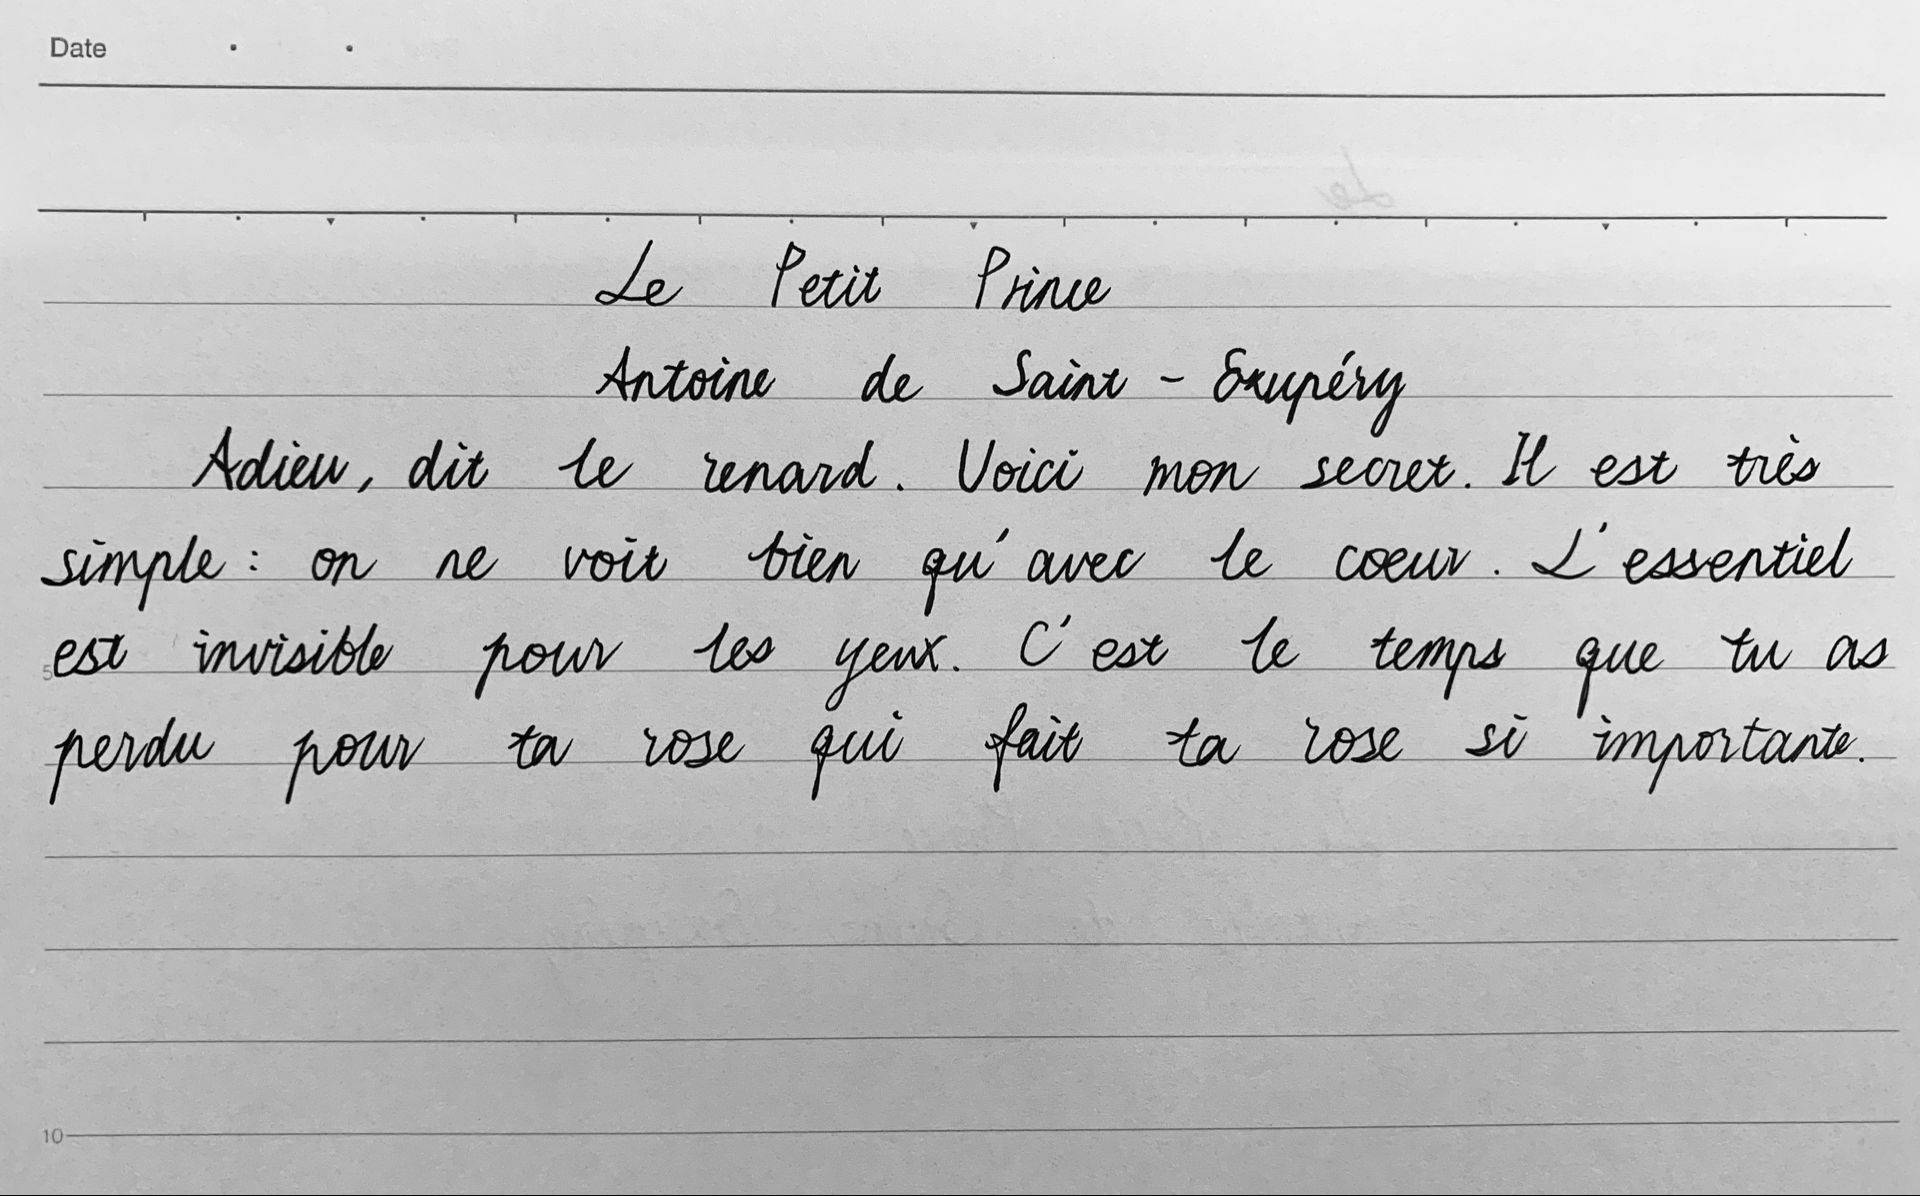 Date . .
Le Petit Prince
Antoine de Saint-Exupéry
Adieu, dit le renard. Voici mon secret. Il est très
simple : on ne voit bien qu'avec le coeur. L'essentiel
est invisible pour les yeux. C'est le temps que tu as
5
perdu pour ta rose qui fait ta rose si importante.
10